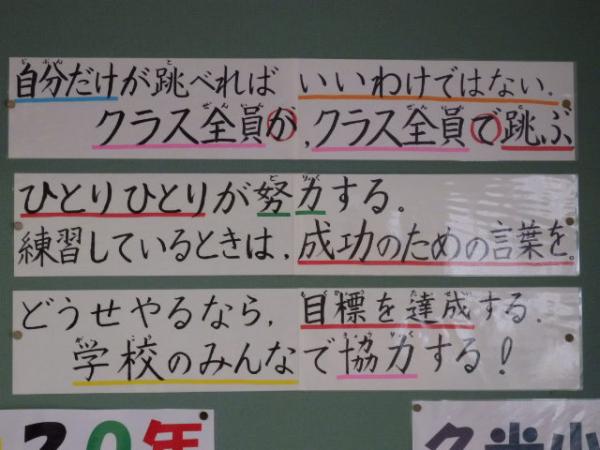 自分だけが跳べれば いいわけではない.
クラス全員が,クラス全員で跳ぶ
ひとりひとりが努力する。
練習しているときは,成功のための言葉を。
どうせやるなら,目標を達成する.
学校のみんなで協力する!
20年
久米小